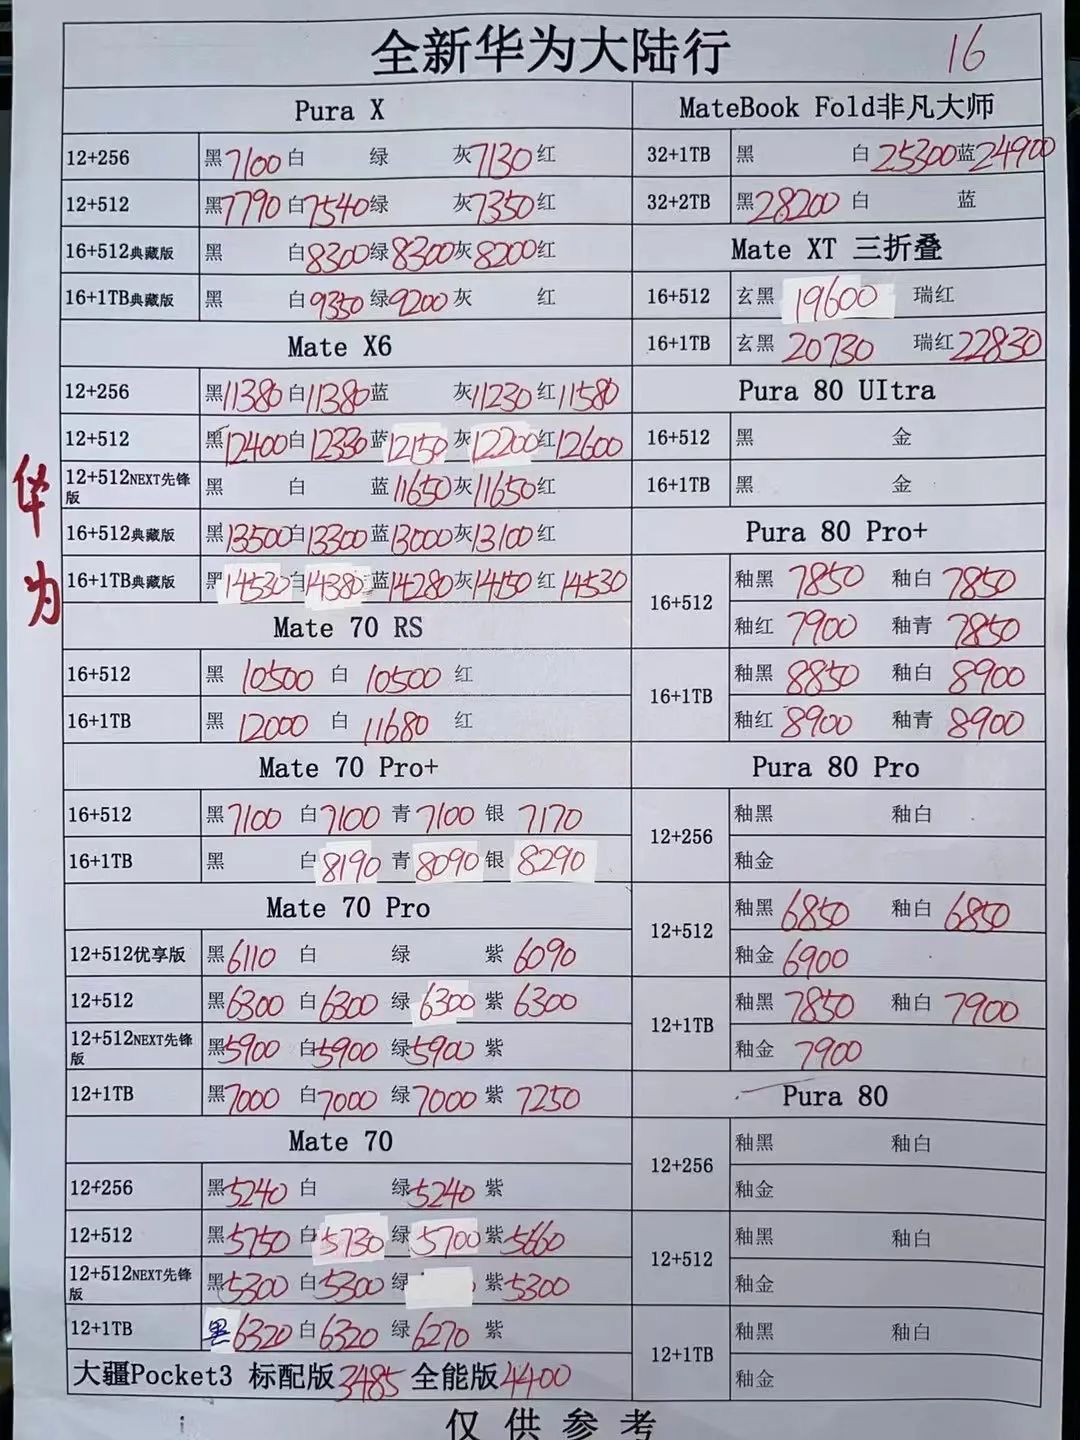 全新华为大陆行 16
华为
Pura X
12+256 黑7100 白 绿 灰7130 红
12+512 黑7790 白7540 绿 灰7350 红
16+512典藏版 黑 白8300 绿8300 灰8200 红
16+1TB典藏版 黑 白9350 绿9200 灰 红
Mate X6
12+256 黑11380 白11380 蓝 灰11230 红11580
12+512 黑12400 白12330 蓝12150 灰12200 红12600
12+512NEXT先锋版 黑 白 蓝11650 灰11650 红
16+512典藏版 黑13500 白13300 蓝13000 灰13100 红
16+1TB典藏版 黑14530 白14380 蓝14280 灰14150 红14530
Mate 70 RS
16+512 黑 10500 白 10500 红
16+1TB 黑 12000 白 11680 红
Mate 70 Pro+
16+512 黑7100 白7100 青7100 银 7170
16+1TB 黑 白8190 青8090 银8290
Mate 70 Pro
12+512优享版 黑6110 白 绿 紫 6090
12+512 黑6300 白6300 绿6300 紫 6300
12+512NEXT先锋版 黑5900 白5900 绿5900 紫
12+1TB 黑7000 白7000 绿7000 紫 7250
Mate 70
12+256 黑5240 白 绿5240 紫
12+512 黑5750 白5730 绿5700 紫5660
12+512NEXT先锋版 黑5300 白5300 绿 紫5300
12+1TB 黑6320 白6320 绿6270 紫
大疆Pocket3 标配版3485 全能版4400
MateBook Fold非凡大师
32+1TB 黑 白25300 蓝24900
32+2TB 黑28200 白 蓝
Mate XT 三折叠
16+512 玄黑 19600 瑞红
16+1TB 玄黑 20730 瑞红22830
Pura 80 UItra
16+512 黑 金
16+1TB 黑 金
Pura 80 Pro+
16+512 釉黑 7850 釉白 7850
釉红 7900 釉青 7850
16+1TB 釉黑 8850 釉白 8900
釉红 8900 釉青 8900
Pura 80 Pro
12+256 釉黑 釉白
釉金
12+512 釉黑 6850 釉白 6850
釉金 6900
12+1TB 釉黑 7850 釉白 7900
釉金 7900
Pura 80
12+256 釉黑 釉白
釉金
12+512 釉黑 釉白
釉金
12+1TB 釉黑 釉白
釉金
仅供参考